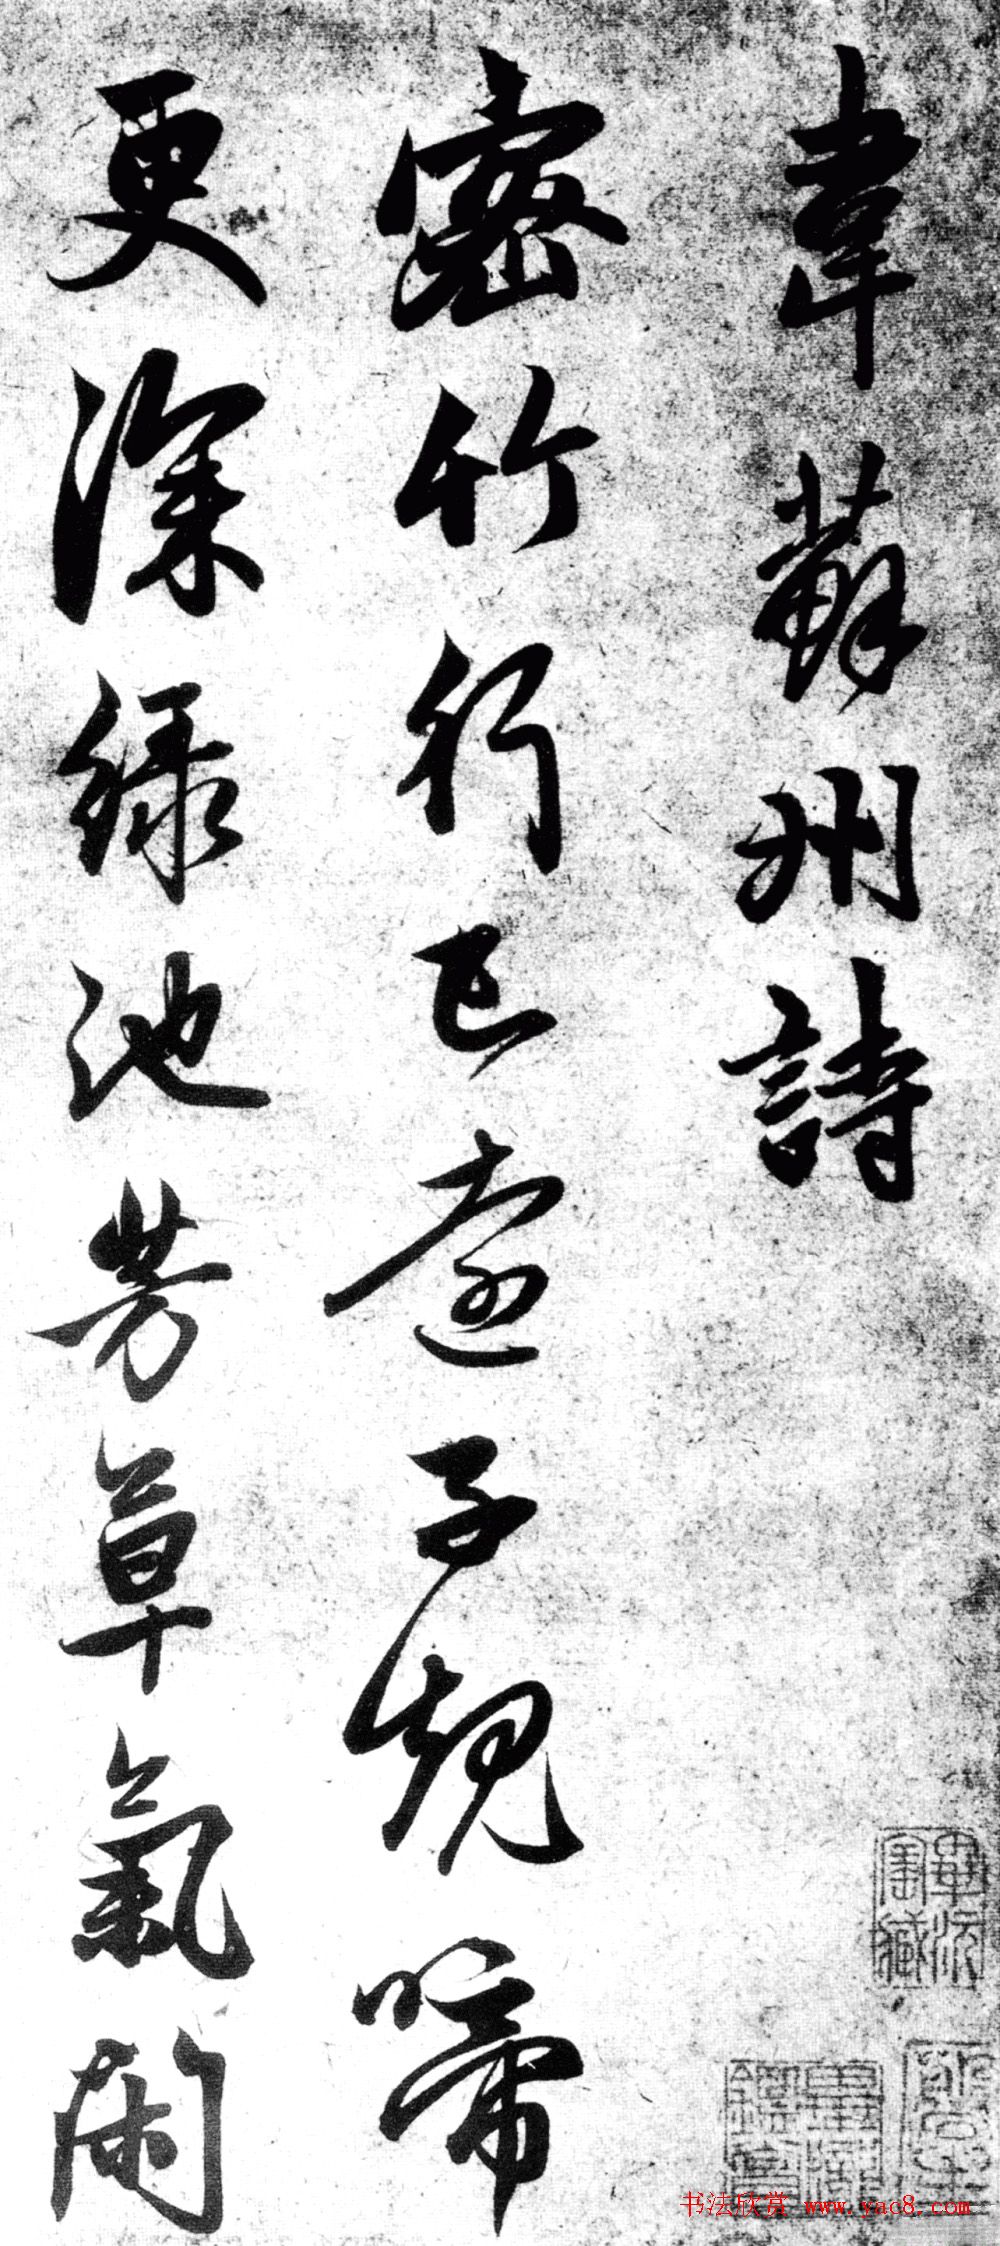 韋蘇州詩
密竹行已遠子規啼
更深緑池芳草氣閑
书法欣赏 www.yac8.com